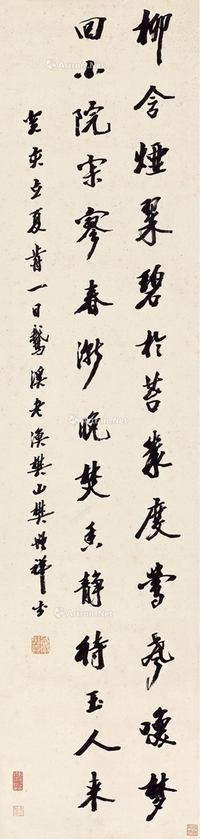 柳含烟翠碧于苔几度莺声唤梦
回小院寂寥春渐晚焚香静待玉人来
癸亥立夏前一日鹅溪老渔樊山樊增祥书